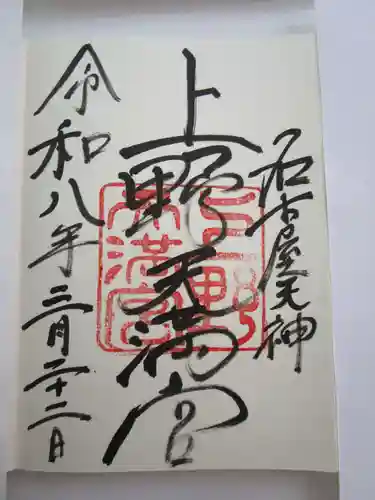 名古屋天神
上野天満宮
上野
天満宮
令和八年二月二十二日